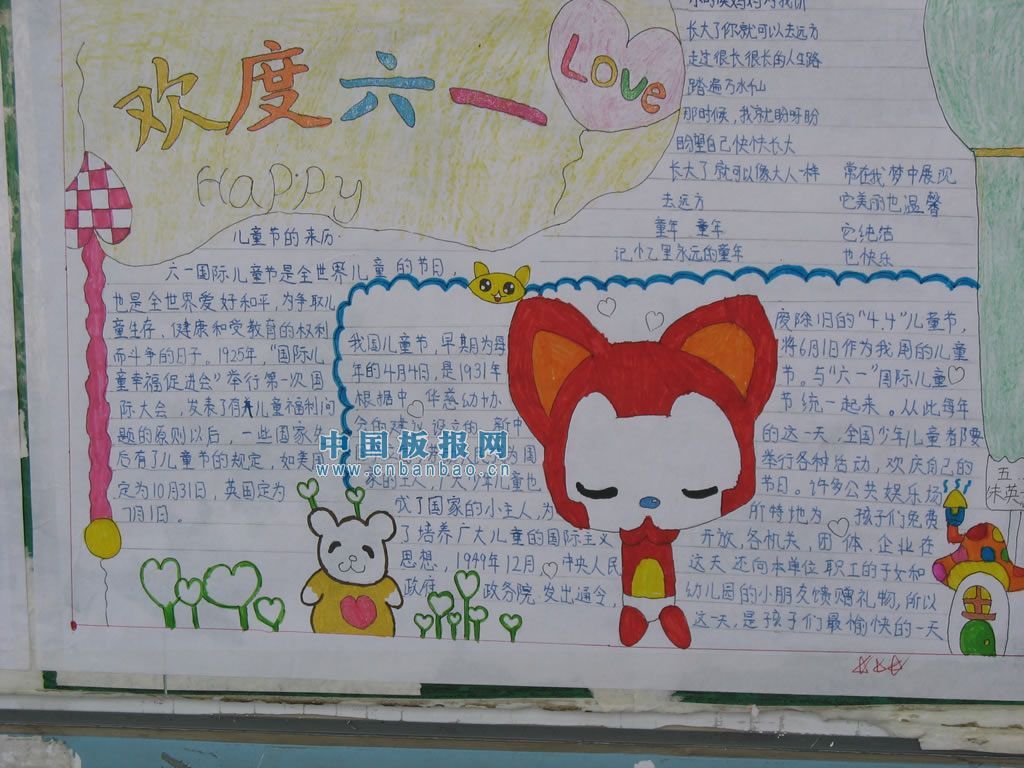 欢度六一
Happy
Love
长大了你就可以去远方
走过很长很长的人生路
踏遍万水仙
那时候，我就盼呀盼
盼望自己快快长大
长大了就可以像大人一样
去远方
童年 童年
记忆里永远的童年
常在我梦中展现
它美丽也温馨
它纯洁
也快乐
儿童节的来历.
六一国际儿童节是全世界儿童的节日，
也是全世界爱好和平，为争取儿
童生存、健康和受教育的权利
而斗争的日子。1925年，“国际儿
童幸福促进会”举行第一次国
际大会，发表了有关儿童福利问
题的原则以后，一些国家先
后有了儿童节的规定，如美国
定为10月31日，英国定为
7月1日。
我国儿童节，早期为每
年的4月4日，是1931年
根据中华慈幼协
会的建议设立的。新中
为国
家的主人，广大少年儿童也
成了国家的小主人，为
了培养广大儿童的国际主义
思想，1949年12月，中央人民
政府政务院发出通令，
废除旧的“4.4”儿童节，
将6月1日作为我用的儿童
节。与“六一”国际儿童
节统一起来。从此每年
的这一天，全国少年儿童都要
举行各种活动，欢庆自己的
节日。许多公共娱乐场
所特地为孩子们免费
开放，各机关，团体，企业在
这天还向本单位职工的子女和
幼儿园的小朋友馈赠礼物，所以
这一天，是孩子们最愉快的一天
五
朱英
中国板报网
www.cnbanbao.cn